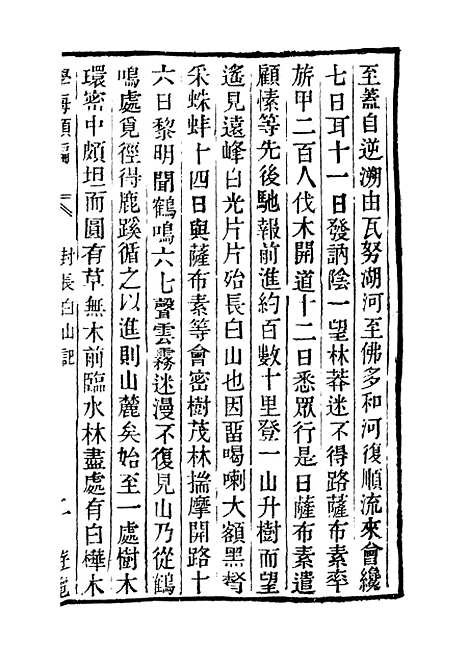 至蓋自逆溯由瓦努湖河至佛多和河復順流來會纔
七日耳十一日發訥陰一望林莽迷不得路薩布素率
旂甲二百人伐木開道十二日悉眾行是日薩布素遣
顧愫等先後馳報前進約百數十里登一山升樹而望
遙見遠峰白光片片殆長白山也因畱噶喇大額黑彎
采蛛蚌十四日與薩布素等會密樹茂林揣摩開路十
六日黎明聞鶴鳴六七聲雲霧迷漫不復見山乃從鶴
鳴處覓徑得鹿蹊循之以進則山麓矣始至一處樹木
環密中頗坦而圓有草無木前臨水林盡處有白樺木
學海類編 封長白山記